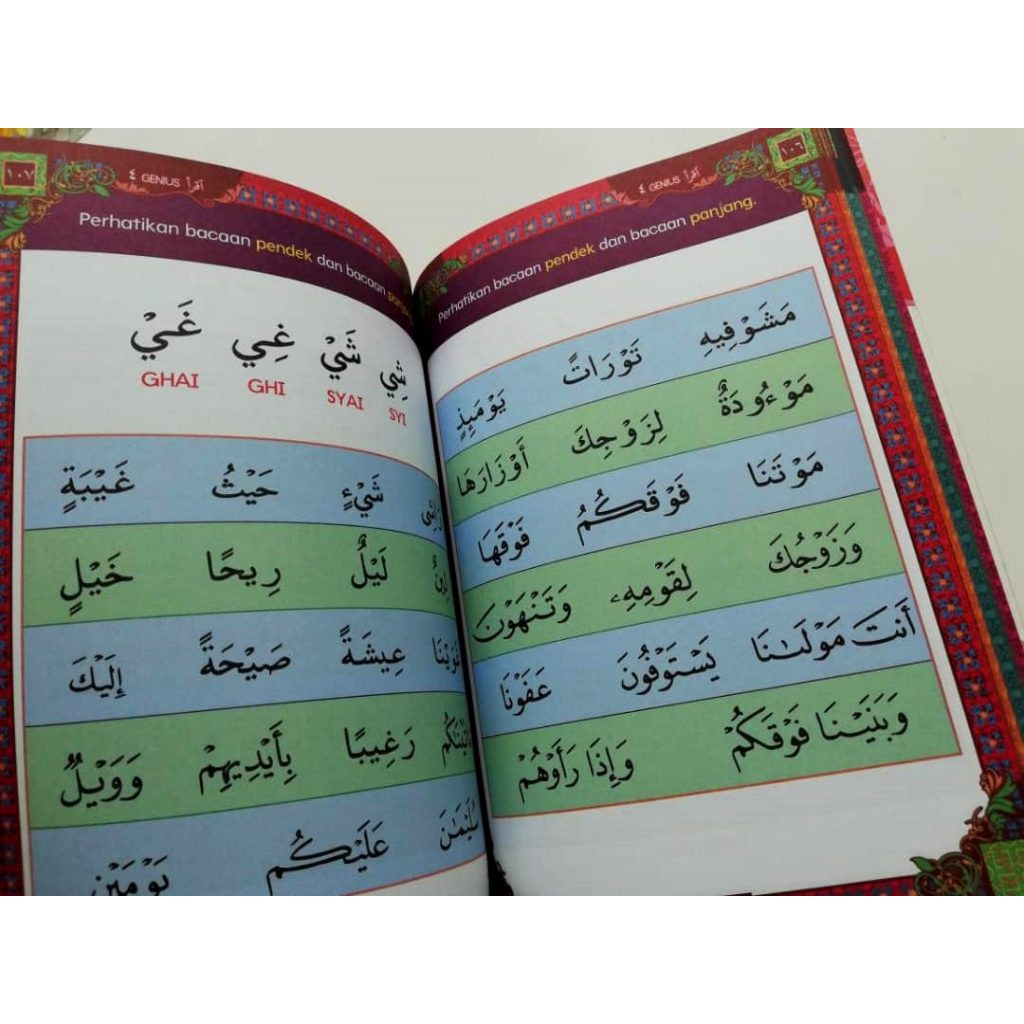 ١٠٦
اقرأ GENIUS ٤
Perhatikan bacaan pendek dan bacaan panjang.
مَشَوْفِيهِ تَوْرَاتً يَوْمَئِذٍ
مَوْءُودَةٌ لِزَوْجِكَ أَوْزَارَهَا
مَوْتَنَا فَوْقَكُمُ فَوْقَهَا
وَزَوْجُكَ لِقَوْمِهِۦ وَتَنْهَوْنَ
أَنتَ مَوْلَىٰنَا يَسْتَوْفُونَ عَفَوْنَا
وَبَنَيْنَا فَوْقَكُمْ وَإِذَا رَأَوْهُمْ
١٠٧
اقرأ GENIUS ٤
Perhatikan bacaan pendek dan bacaan
شِي شَيْ غِي غَيْ
SYI SYAI GHI GHAI
شَيْءٍ حَيْثُ غَيْبَةٍ
لَيْلٌ رِيحًا خَيْلٍ
عِيشَةً صَيْحَةً إِلَيْكَ
رَغِيبًا بِأَيْدِيهِمْ وَوَيْلٌ
سُلَيْمَٰنَ عَلَيْكُم يَوْمَيْنِ